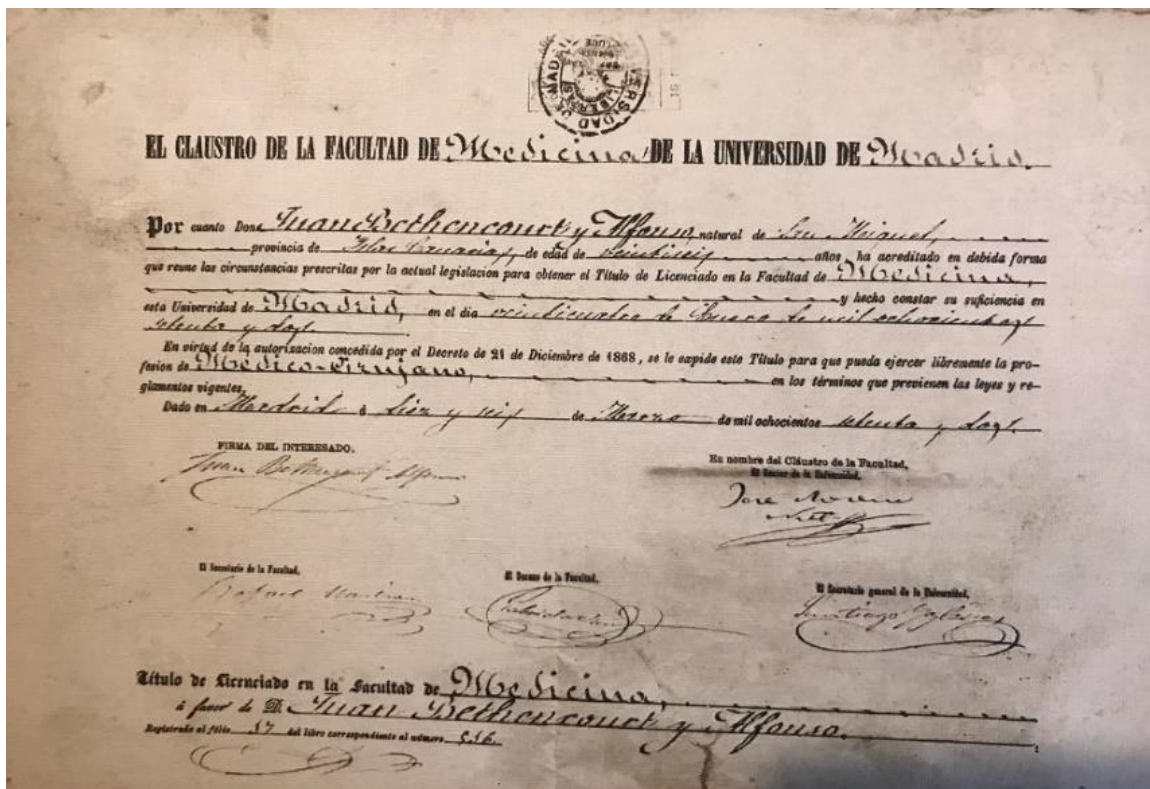 UNIVERSIDAD DE MADRID
EL CLAUSTRO DE LA FACULTAD DE Medicina DE LA UNIVERSIDAD DE Madrid.
Por cuanto Don Juan Bethencourt y Alfonso, natural de San Miguel,
provincia de Islas Canarias, de edad de veintiseis años, ha acreditado en debida forma
que reune las circunstancias prescritas por la actual legislacion para obtener el Título de Licenciado en la Facultad de Medicina,
y hecho constar su suficiencia en
esta Universidad de Madrid, en el dia veinticuatro de Enero de mil ochocientos
setenta y dos.
En virtud de la autorizacion concedida por el Decreto de 21 de Diciembre de 1868, se le expide este Título para que pueda ejercer libremente la pro-
fesion de Médico-Cirujano, en los términos que previenen las leyes y re-
glamentos vigentes.
Dado en Madrid á diez y seis de Marzo de mil ochocientos setenta y dos.
FIRMA DEL INTERESADO,
Juan Bethencourt Alfonso
En nombre del Cláustro de la Facultad,
El Rector de la Universidad,
Jose Moreno
Nieto
El Secretario de la Facultad,
El Decano de la Facultad,
El Secretario general de la Universidad,
Rafael
Santiago Yglesias
Título de Licenciado en la Facultad de Medicina,
á favor de D. Juan Bethencourt y Alfonso.
Registrado al fólio 57 del libro correspondiente al número 556.